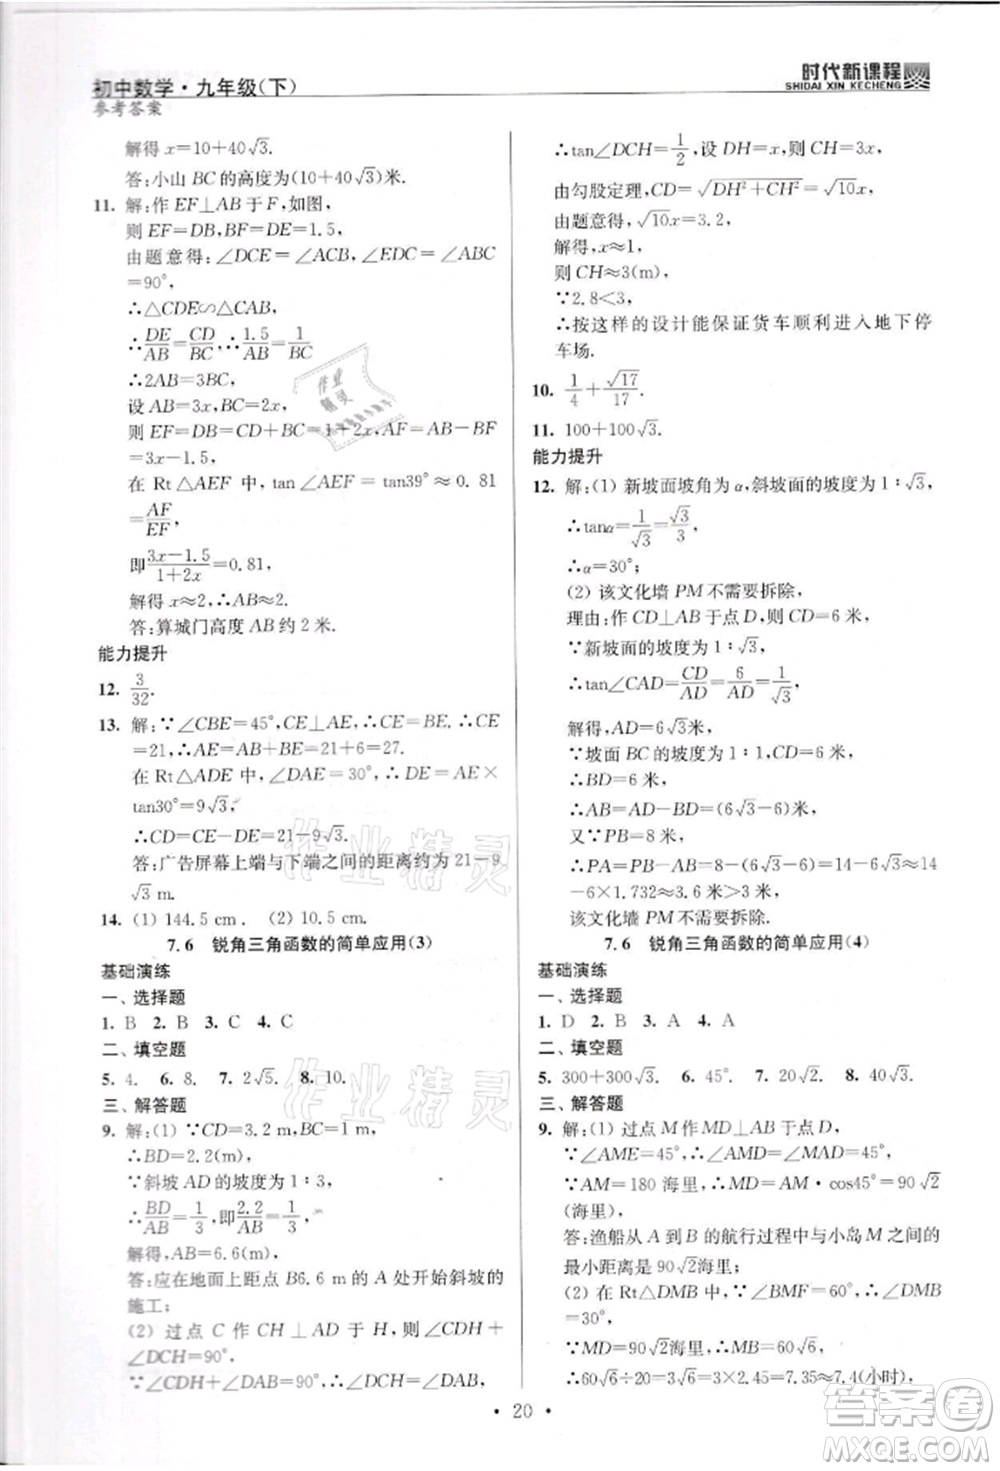 初中数学·九年级(下)
参考答案
时代新课程
SHIDAI XIN KECHENG
解得 x=10+40√3.
答:小山 BC 的高度为(10+40√3)米.
11. 解:作 EF⊥AB 于 F,如图,
则 EF=DB,BF=DE=1.5,
由题意得:∠DCE=∠ACB,∠EDC=∠ABC
=90°,
∴△CDE∽△CAB,
∴DE/AB=CD/BC,∴1.5/AB=1/BC
∴2AB=3BC,
设 AB=3x,BC=2x,
则 EF=DB=CD+BC=1+2x,AF=AB-BF
=3x-1.5,
在 Rt△AEF 中,tan∠AEF=tan39°≈0.81
=AF/EF,
即(3x-1.5)/(1+2x)=0.81,
解得 x≈2,∴AB≈2.
答:算城门高度 AB 约 2 米.
能力提升
12. 3/32.
13. 解:∵∠CBE=45°,CE⊥AE,∴CE=BE.∵CE
=21,∴AE=AB+BE=21+6=27.
在 Rt△ADE 中,∠DAE=30°,∴DE=AE×
tan30°=9√3,
∴CD=CE-DE=21-9√3.
答:广告屏幕上端与下端之间的距离约为 21-9
√3 m.
14. (1) 144.5 cm. (2) 10.5 cm.
7.6 锐角三角函数的简单应用(3)
基础演练
一、选择题
1. B 2. B 3. C 4. C
二、填空题
5. 4. 6. 8. 7. 2√5. 8. 10.
三、解答题
9. 解:(1) ∵CD=3.2 m,BC=1 m,
∴BD=2.2(m),
∵斜坡 AD 的坡度为 1:3,
∴BD/AB=1/3,即2.2/AB=1/3,
解得,AB=6.6(m),
答:应在地面上距点 B6.6 m 的 A 处开始斜坡的
施工;
(2) 过点 C 作 CH⊥AD 于 H,则∠CDH+
∠DCH=90°,
∵∠CDH+∠DAB=90°,∴∠DCH=∠DAB,
∴tan∠DCH=1/2,设 DH=x,则 CH=3x,
由勾股定理,CD=√(DH²+CH²)=√10x,
由题意得,√10x=3.2,
解得,x≈1,
则 CH≈3(m),
∵2.8<3,
∴按这样的设计能保证货车顺利进入地下停
车场.
10. 1/4+√17/17.
11. 100+100√3.
能力提升
12. 解:(1) 新坡面坡角为 α,斜坡面的坡度为 1:√3,
∴tanα=1/√3=√3/3,
∴α=30°;
(2) 该文化墙 PM 不需要拆除,
理由:作 CD⊥AB 于点 D,则 CD=6 米,
∵新坡面的坡度为 1:√3,
∴tan∠CAD=CD/AD=6/AD=1/√3,
解得,AD=6√3,
∵坡面 BC 的坡度为 1:1,CD=6 米,
∴BD=6 米,
∴AB=AD-BD=(6√3-6)米,
又∵PB=8 米,
∴PA=PB-AB=8-(6√3-6)=14-6√3≈14
-6×1.732≈3.6 米>3 米,
该文化墙 PM 不需要拆除.
7.6 锐角三角函数的简单应用(4)
基础演练
一、选择题
1. D 2. B 3. A 4. A
二、填空题
5. 300+300√3. 6. 45°. 7. 20√2. 8. 40√3.
三、解答题
9. 解:(1) 过点 M 作 MD⊥AB 于点 D,
∵∠AME=45°,∴∠AMD=∠MAD=45°,
∵AM=180 海里,∴MD=AM·cos45°=90√2
(海里),
答:渔船从 A 到 B 的航行过程中与小岛 M 之间的
最小距离是 90√2海里;
(2) 在 Rt△DMB 中,∵∠BMF=60°,∴∠DMB
=30°,
∵MD=90√2海里,∴MB=60√6,
∴60√6÷20=3√6≈3×2.45=7.35≈7.4(小时),
· 20 ·
作业精灵
作业精灵
作业精灵
答案圈
MXQE.COM